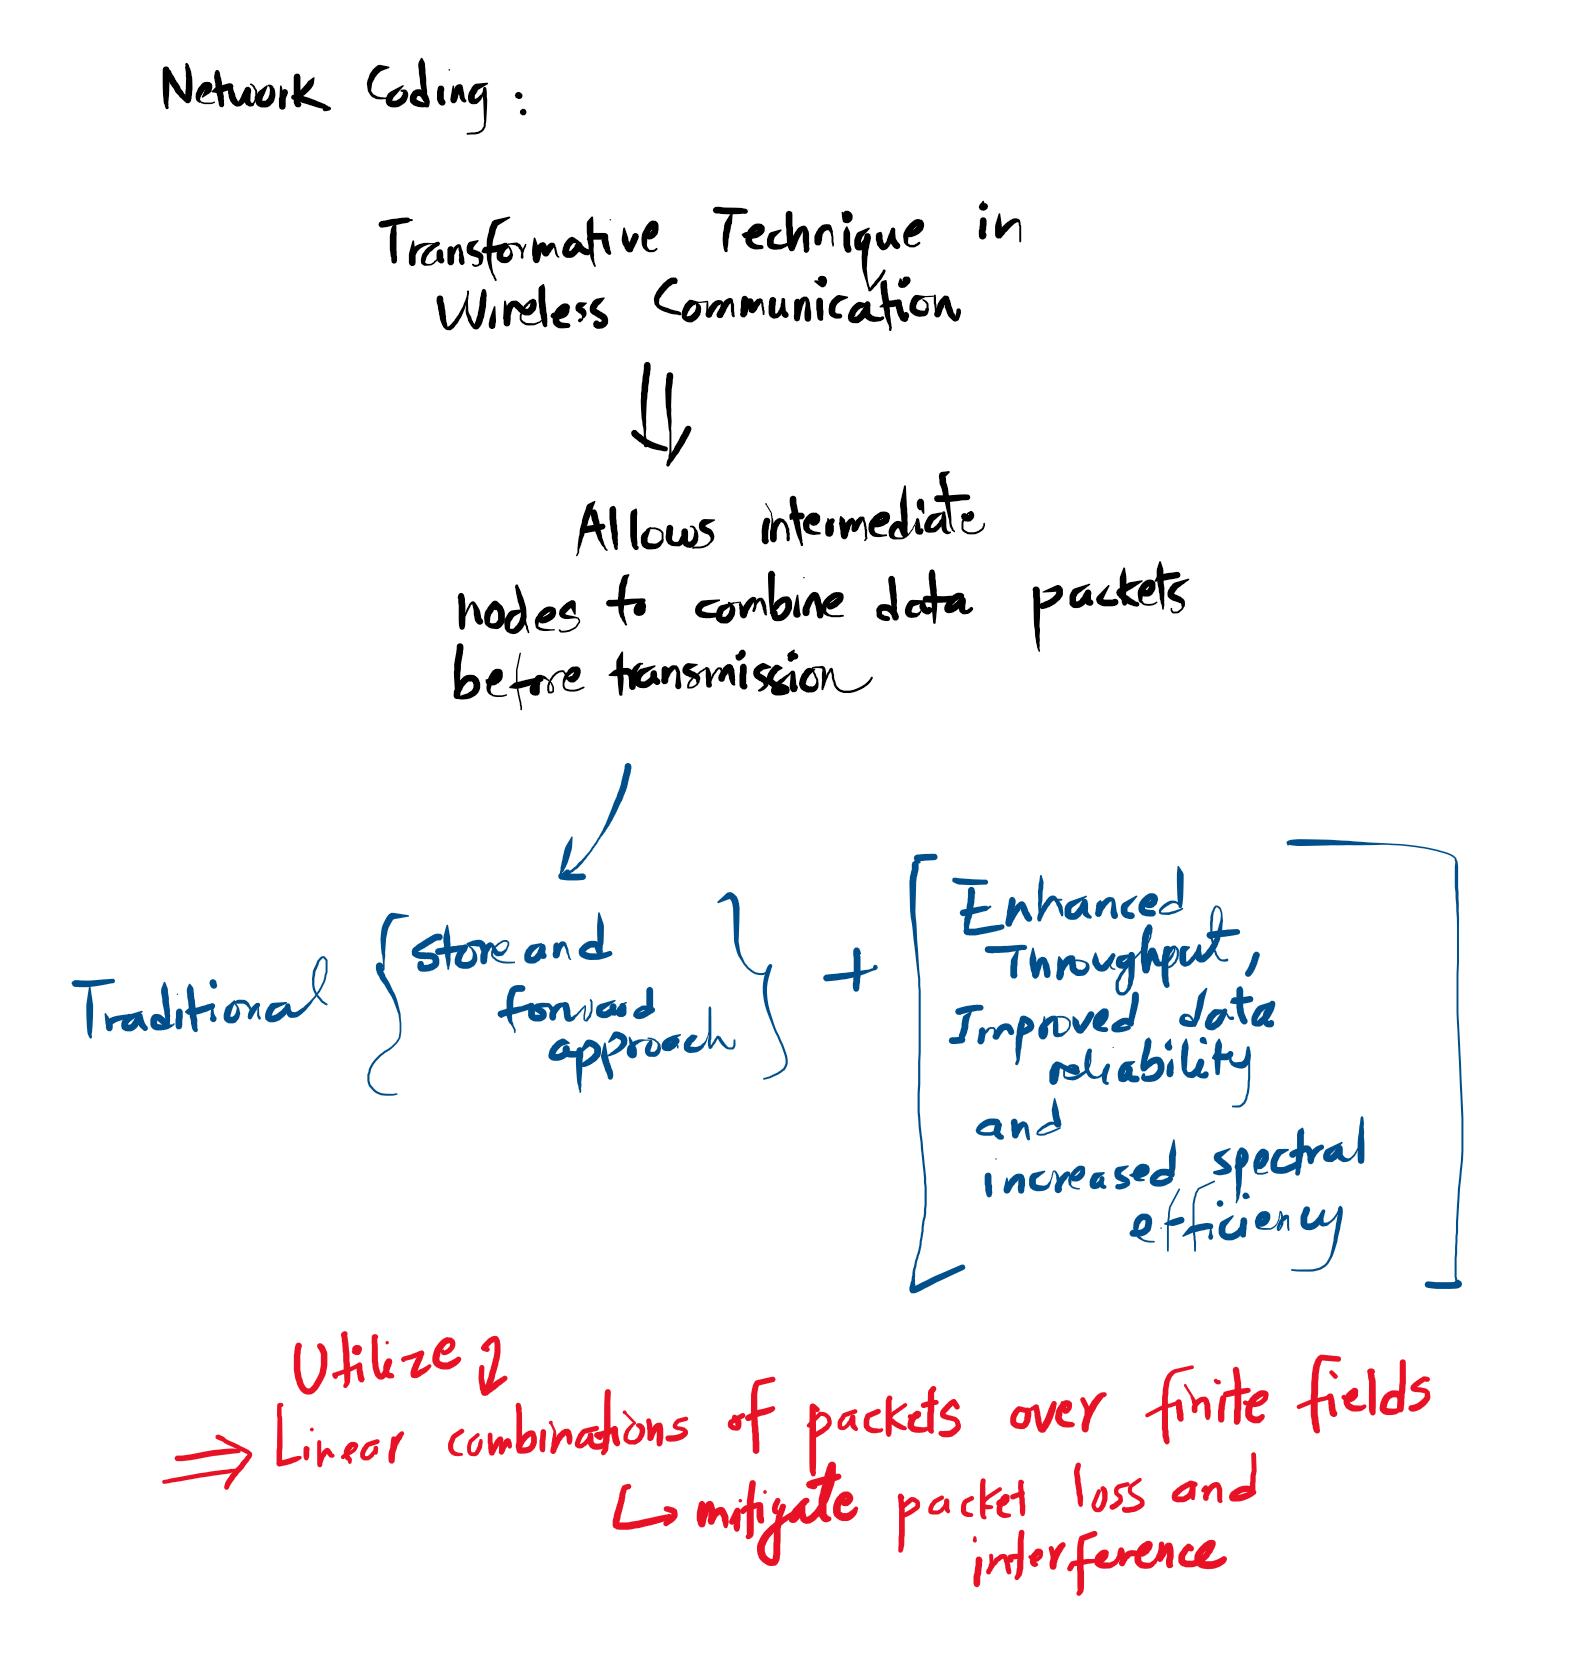 Network Coding :
Transformative Technique in
Wireless Communication
⇓
Allows intermediate
nodes to combine data packets
before transmission
↙
Traditional { store and
forward
approach } + [ Enhanced
Throughput,
Improved data
reliability
and
increased spectral
efficiency ]
Utilize ↓
⇒ Linear combinations of packets over finite fields
↳ mitigate packet loss and
interference